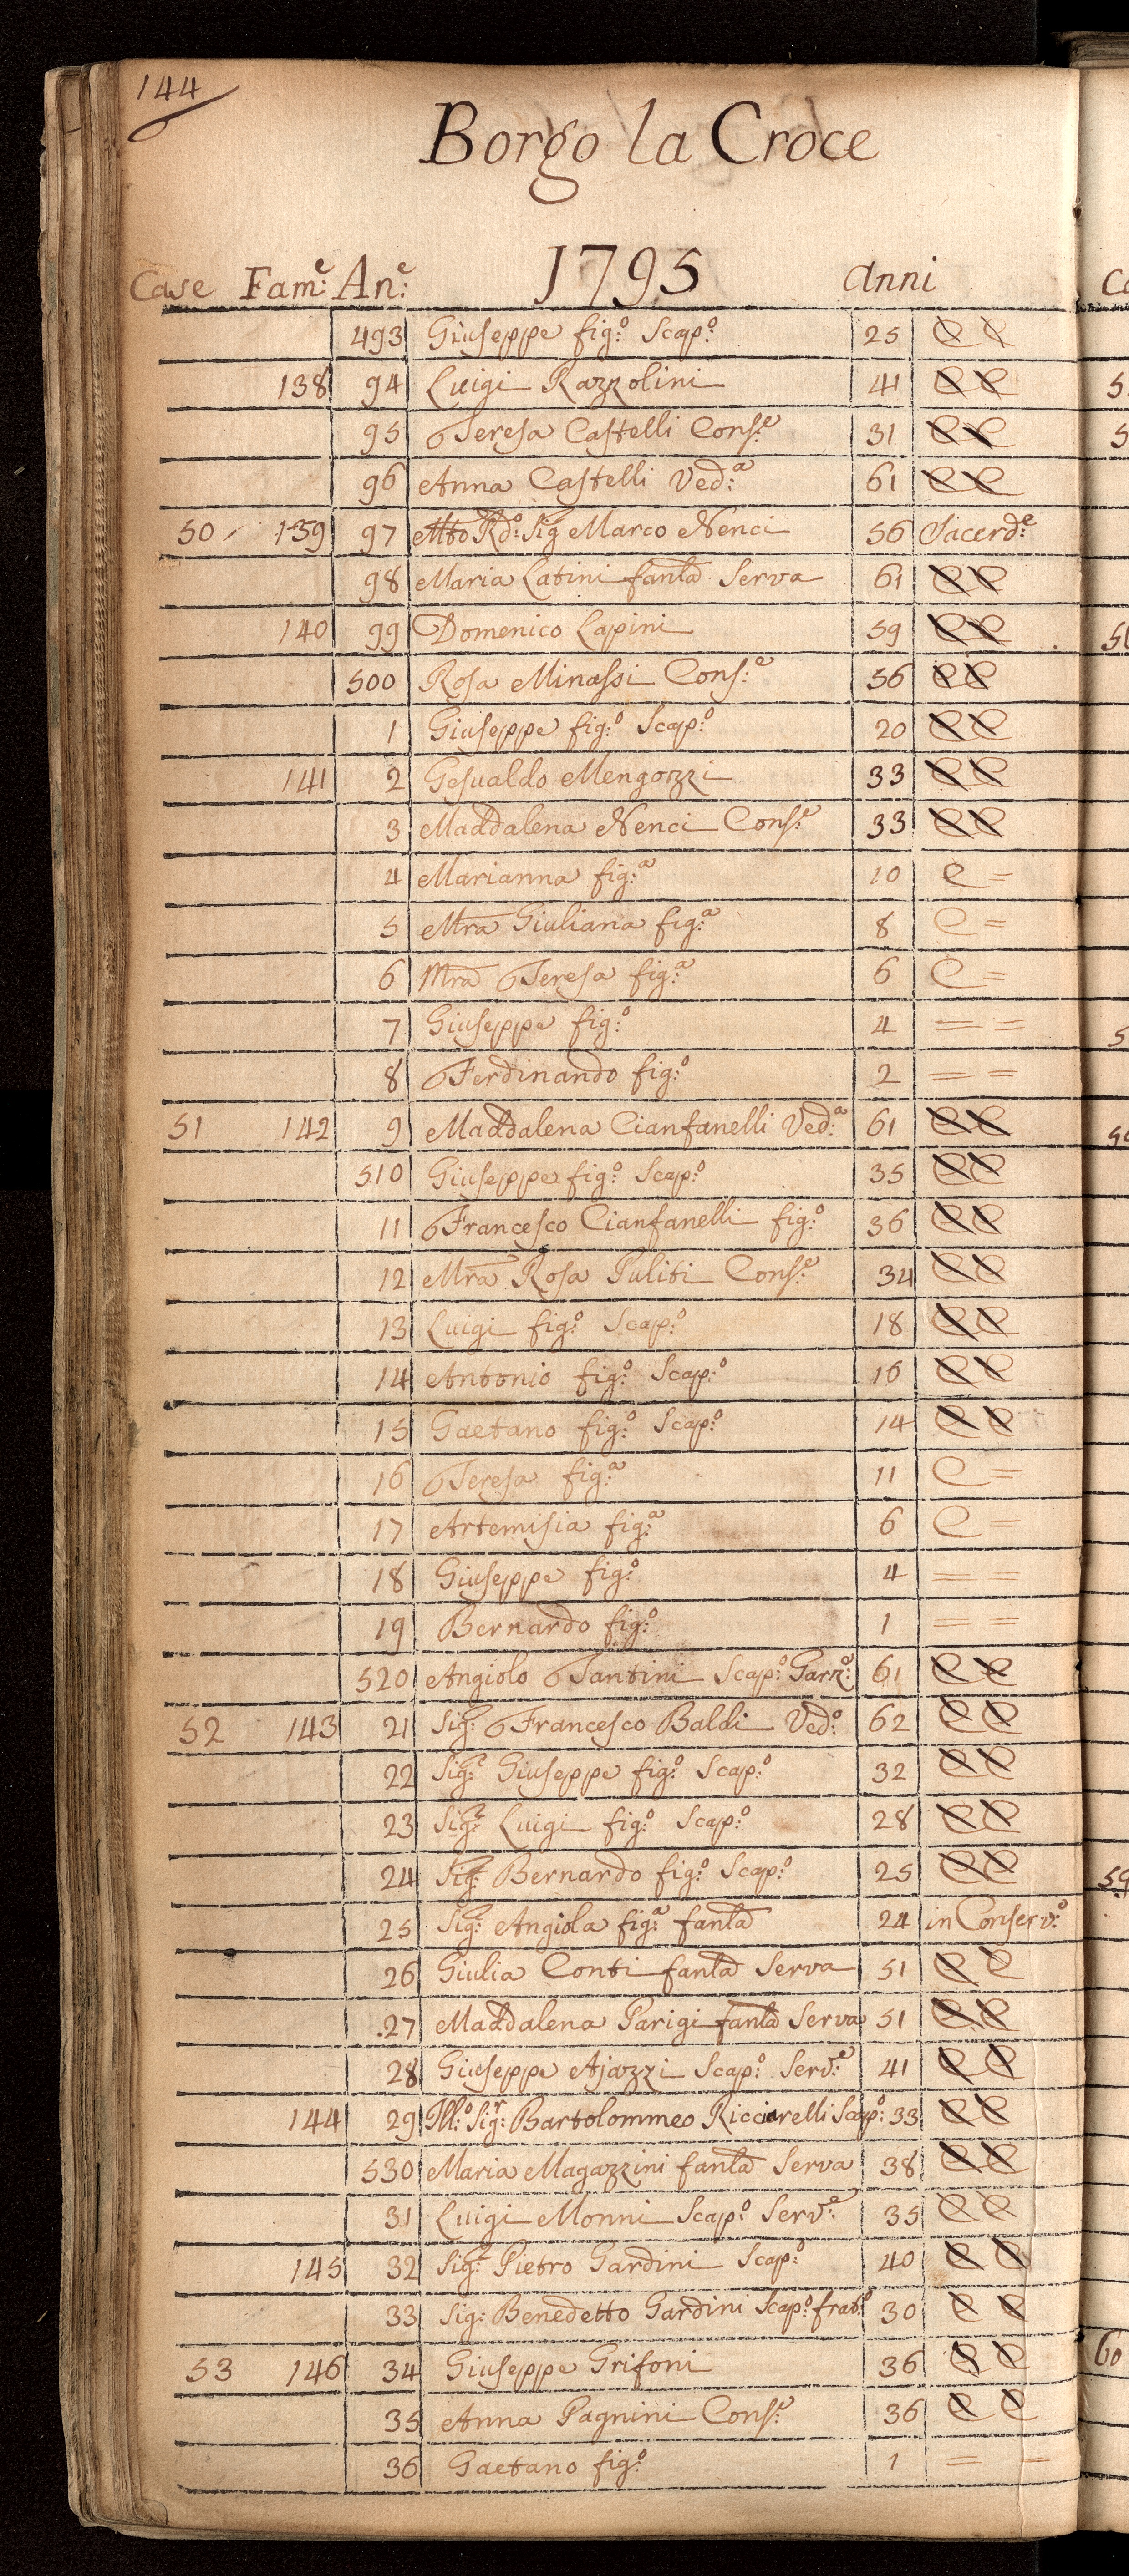 144
Borgo la Croce
Case Fam:e An:e 1795 Anni
493 Giuseppe fig:o Scap:o 25 C C
138 94 Luigi Razzolini 41 C C
95 Teresa Castelli Cons:e 31 C C
96 Anna Castelli Ved:a 61 C C
50 139 97 Mto Rdo: Sig Marco Nenci 56 Sacerd:e
98 Maria Latini fanla Serva 61 C C
140 99 Domenico Lapini 59 C C
500 Rosa Minassi Cons:e 56 C C
1 Giuseppe fig:o Scap:o 20 C C
141 2 Gesualdo Mengozzi 33 C C
3 Maddalena Nenci Cons:e 33 C C
4 Marianna fig:a 10 C =
5 Mra Giuliana fig:a 8 C =
6 Mra Teresa fig:a 6 C =
7 Giuseppe fig:o 4 = =
8 Ferdinando fig:o 2 = =
51 142 9 Maddalena Cianfanelli Ved:a 61 C C
510 Giuseppe fig:o Scap:o 35 C C
11 Francesco Cianfanelli fig:o 36 C C
12 Mra Rosa Puliti Cons:e 34 C C
13 Luigi fig:o Scap:o 18 C C
14 Antonio fig:o Scap:o 16 C C
15 Gaetano fig:o Scap:o 14 C C
16 Teresa fig:a 11 C =
17 Artemisia fig:a 6 C =
18 Giuseppe fig:o 4 = =
19 Bernardo fig:o 1 = =
520 Angiolo Tantini Scap:o Garz:o 61 C C
52 143 21 Sig: Francesco Baldi Ved:o 62 C C
22 Sig:r Giuseppe fig:o Scap:o 32 C C
23 Sig:r Luigi fig:o Scap:o 28 C C
24 Sig: Bernardo fig:o Scap:o 25 C C
25 Sig: Angiola fig:a fanla 24 in Conserv:o
26 Giulia Conti fanla Serva 51 C C
27 Maddalena Parigi fanla Serva 51 C C
28 Giuseppe Ajazzi Scap:o Serv:e 41 C C
144 29 Ill:o Sig:r Bartolommeo Ricciarelli Scap:o 33 C C
530 Maria Magazzini fanla Serva 38 C C
31 Luigi Monni Scap:o Serv:e 35 C C
145 32 Sig:r Pietro Gardini Scap:o 40 C C
33 Sig: Benedetto Gardini Scap:o frat:o 30 C C
53 146 34 Giuseppe Grifoni 36 C C
35 Anna Pagnini Cons:e 36 C C
36 Gaetano fig:o 1 = =
60